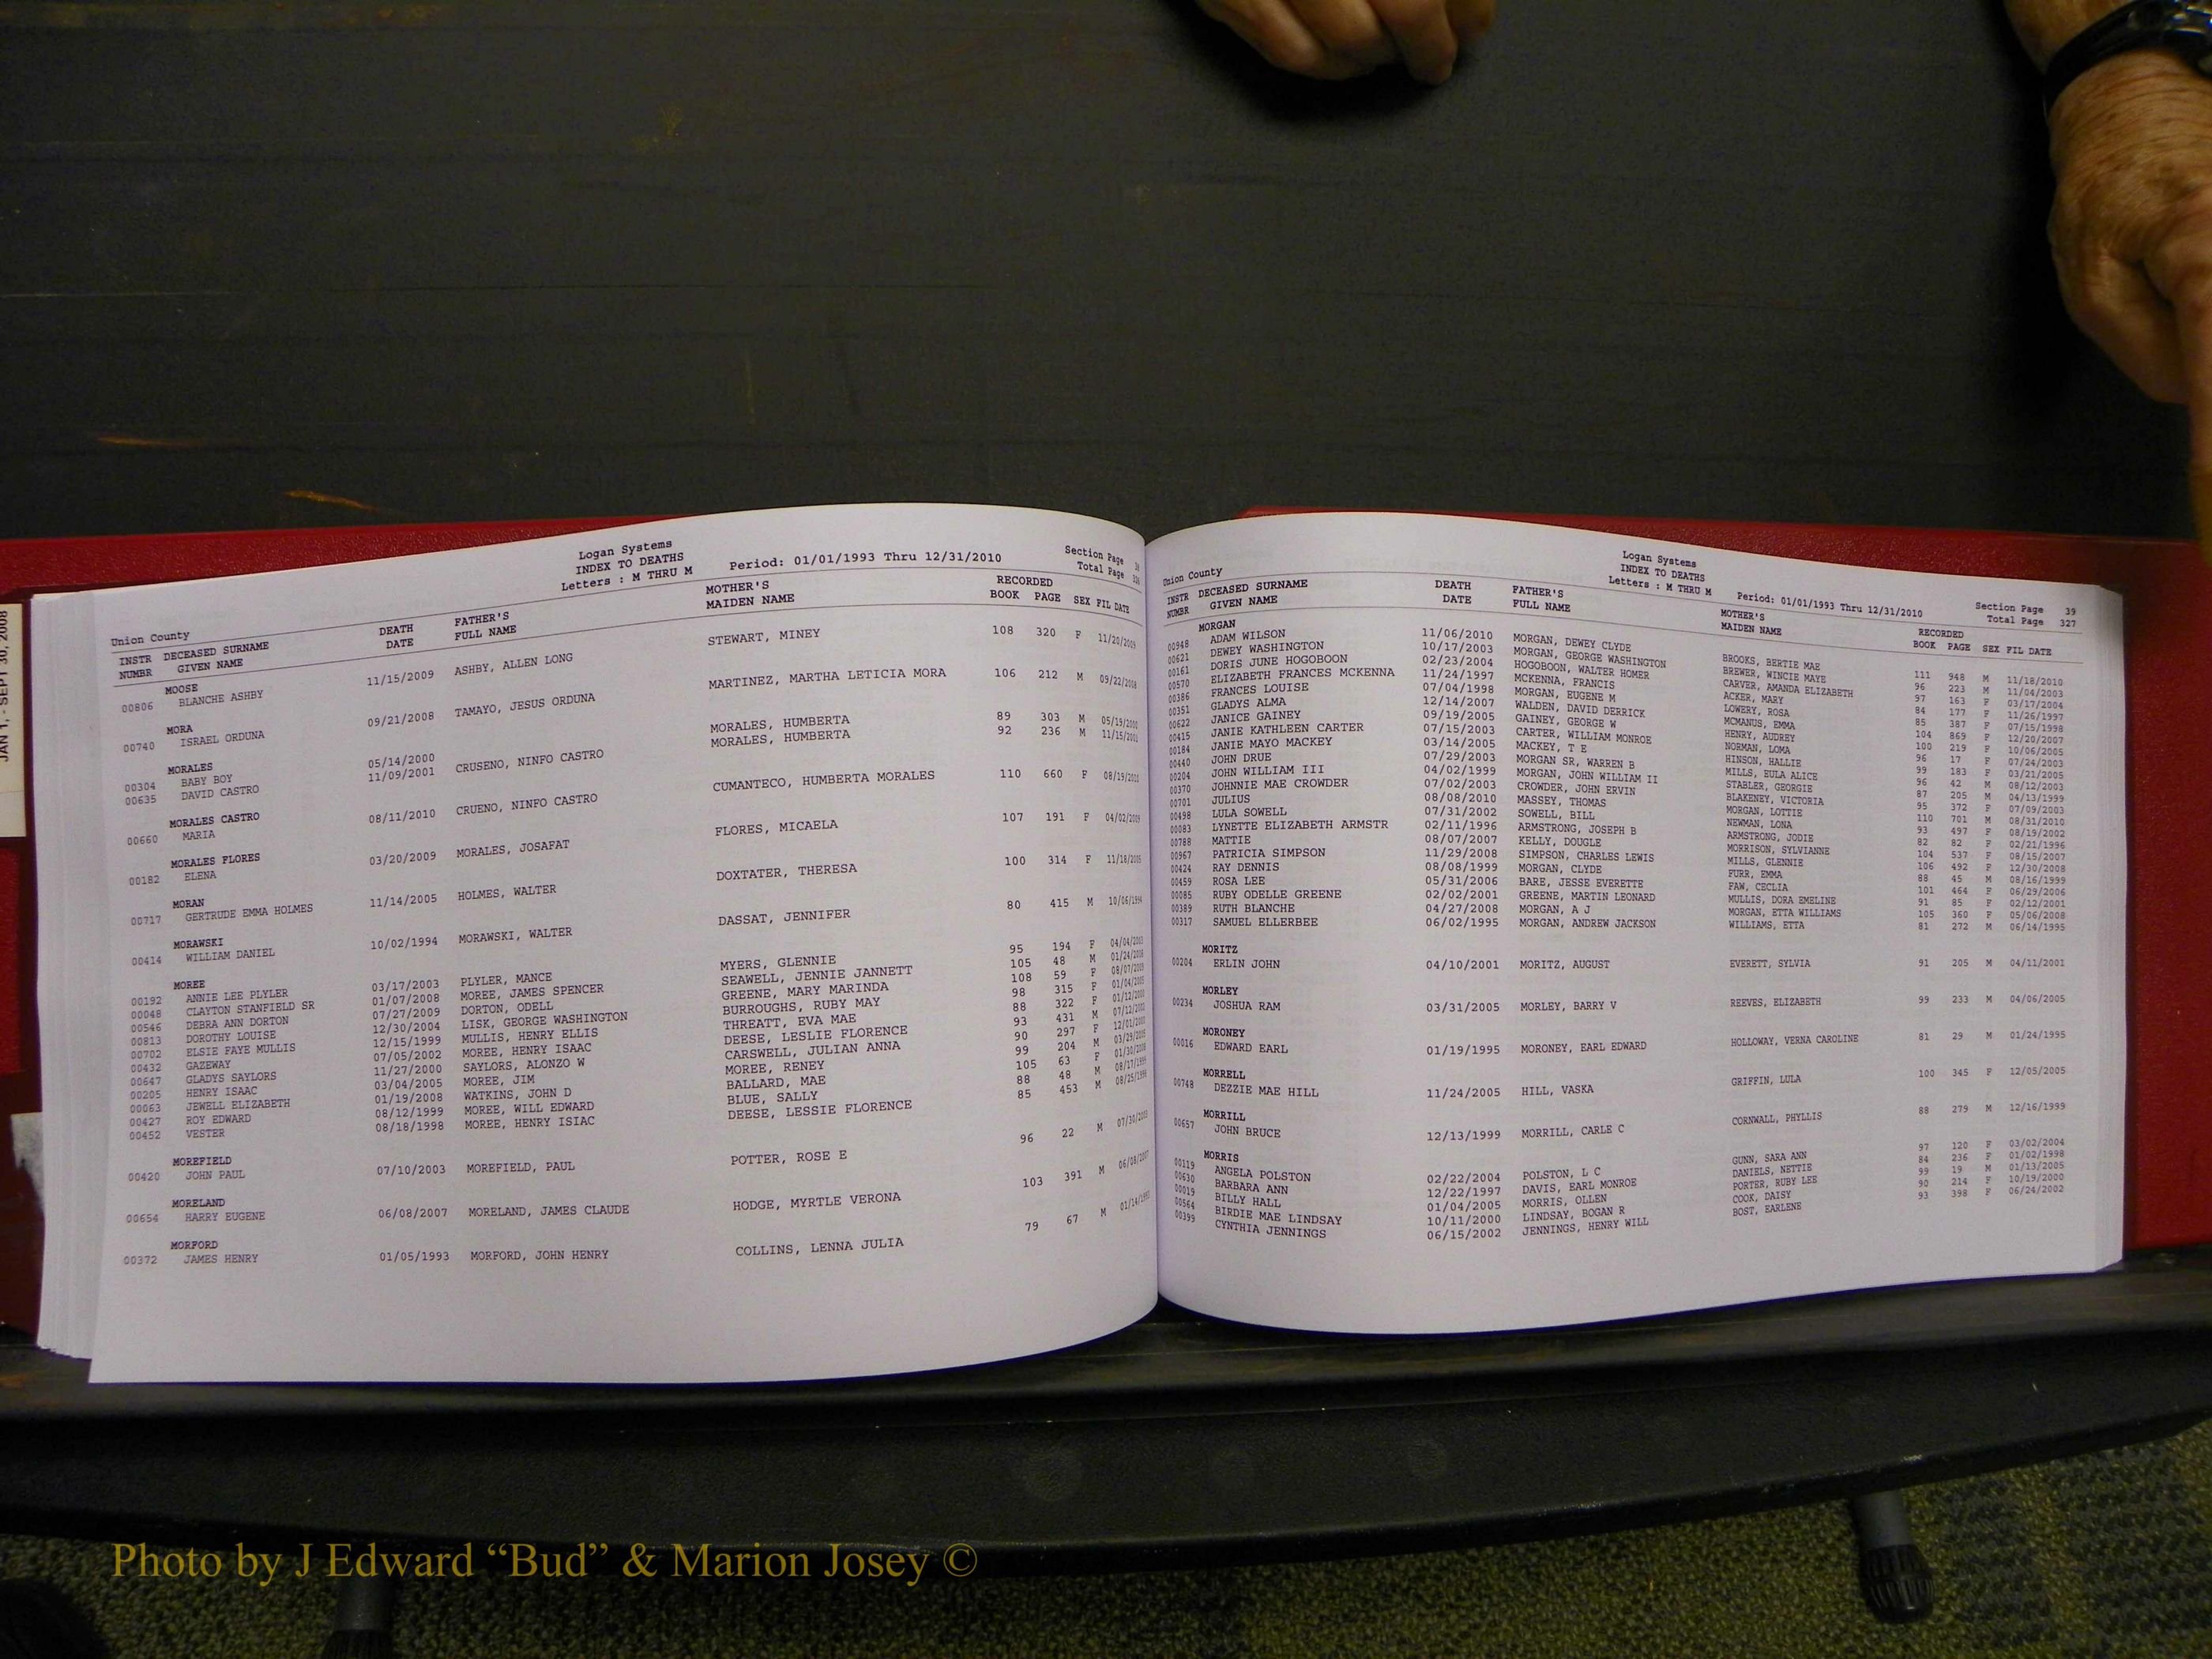 JAN 1, - SEPT 30, 2008
Logan Systems
INDEX TO DEATHS
Letters : M THRU M
Period: 01/01/1993 Thru 12/31/2010
Section Page
Total Page
Union County
INSTR DECEASED SURNAME DEATH FATHER'S MOTHER'S RECORDED
NUMBR GIVEN NAME DATE FULL NAME MAIDEN NAME BOOK PAGE SEX FIL DATE
MOOSE
00806 BLANCHE ASHBY 11/15/2009 ASHBY, ALLEN LONG STEWART, MINEY 108 320 F 11/20/2009
MORA
00740 ISRAEL ORDUNA 09/21/2008 TAMAYO, JESUS ORDUNA MARTINEZ, MARTHA LETICIA MORA 106 212 M 09/22/2008
MORALES
00304 BABY BOY 05/14/2000 MORALES, HUMBERTA 89 303 M 05/19/2000
00635 DAVID CASTRO 11/09/2001 CRUSENO, NINFO CASTRO MORALES, HUMBERTA 92 236 M 11/15/2001
MORALES CASTRO
00660 MARIA 08/11/2010 CRUENO, NINFO CASTRO CUMANTECO, HUMBERTA MORALES 110 660 F 08/19/2010
MORALES FLORES
00182 ELENA 03/20/2009 MORALES, JOSAFAT FLORES, MICAELA 107 191 F 04/02/2009
MORAN
00717 GERTRUDE EMMA HOLMES 11/14/2005 HOLMES, WALTER DOXTATER, THERESA 100 314 F 11/18/2005
MORAWSKI
00414 WILLIAM DANIEL 10/02/1994 MORAWSKI, WALTER DASSAT, JENNIFER 80 415 M 10/06/1994
MOREE
00192 ANNIE LEE PLYLER 03/17/2003 PLYLER, MANCE MYERS, GLENNIE 95 194 F 04/04/2003
00048 CLAYTON STANFIELD SR 01/07/2008 MOREE, JAMES SPENCER SEAWELL, JENNIE JANNETT 105 48 M 01/24/2008
00546 DEBRA ANN DORTON 07/27/2009 DORTON, ODELL GREENE, MARY MARINDA 108 59 F 08/07/2009
00813 DOROTHY LOUISE 12/30/2004 LISK, GEORGE WASHINGTON BURROUGHS, RUBY MAY 98 315 F 01/04/2005
00702 ELSIE FAYE MULLIS 12/15/1999 MULLIS, HENRY ELLIS THREATT, EVA MAE 88 322 F 01/12/2000
00432 GAZEWAY 07/05/2002 MOREE, HENRY ISAAC DEESE, LESLIE FLORENCE 93 431 M 07/12/2002
00647 GLADYS SAYLORS 11/27/2000 SAYLORS, ALONZO W CARSWELL, JULIAN ANNA 90 297 F 12/01/2000
00205 HENRY ISAAC 03/04/2005 MOREE, JIM MOREE, RENEY 99 204 M 03/29/2005
00063 JEWELL ELIZABETH 01/19/2008 WATKINS, JOHN D BALLARD, MAE 105 63 F 01/30/2008
00427 ROY EDWARD 08/12/1999 MOREE, WILL EDWARD BLUE, SALLY 88 48 M 08/17/1999
00452 VESTER 08/18/1998 MOREE, HENRY ISIAC DEESE, LESSIE FLORENCE 85 453 M 08/25/1998
MOREFIELD
00420 JOHN PAUL 07/10/2003 MOREFIELD, PAUL POTTER, ROSE E 96 22 M 07/30/2003
MORELAND
00654 HARRY EUGENE 06/08/2007 MORELAND, JAMES CLAUDE HODGE, MYRTLE VERONA 103 391 M 06/08/2007
MORFORD
00372 JAMES HENRY 01/05/1993 MORFORD, JOHN HENRY COLLINS, LENNA JULIA 79 67 M 01/14/1993
Logan Systems
INDEX TO DEATHS
Letters : M THRU M
Period: 01/01/1993 Thru 12/31/2010
Section Page 39
Total Page 327
Union County
INSTR DECEASED SURNAME DEATH FATHER'S MOTHER'S RECORDED
NUMBR GIVEN NAME DATE FULL NAME MAIDEN NAME BOOK PAGE SEX FIL DATE
MORGAN
00948 ADAM WILSON 11/06/2010 MORGAN, DEWEY CLYDE BROOKS, BERTIE MAE 111 948 M 11/18/2010
00621 DEWEY WASHINGTON 10/17/2003 MORGAN, GEORGE WASHINGTON BREWER, WINCIE MAYE 96 223 M 11/04/2003
00161 DORIS JUNE HOGOBOON 02/23/2004 HOGOBOON, WALTER HOMER CARVER, AMANDA ELIZABETH 97 163 F 03/17/2004
00570 ELIZABETH FRANCES MCKENNA 11/24/1997 MCKENNA, FRANCIS ACKER, MARY 84 177 F 11/26/1997
00386 FRANCES LOUISE 07/04/1998 MORGAN, EUGENE M LOWERY, ROSA 85 387 F 07/15/1998
00351 GLADYS ALMA 12/14/2007 WALDEN, DAVID DERRICK MCMANUS, EMMA 104 869 F 12/20/2007
00622 JANICE GAINEY 09/19/2005 GAINEY, GEORGE W HENRY, AUDREY 100 219 F 10/06/2005
00415 JANIE KATHLEEN CARTER 07/15/2003 CARTER, WILLIAM MONROE NORMAN, LOMA 96 17 F 07/24/2003
00184 JANIE MAYO MACKEY 03/14/2005 MACKEY, T E HINSON, HALLIE 99 183 F 03/21/2005
00440 JOHN DRUE 07/29/2003 MORGAN SR, WARREN B MILLS, EULA ALICE 96 42 M 08/12/2003
00204 JOHN WILLIAM III 04/02/1999 MORGAN, JOHN WILLIAM II STABLER, GEORGIE 87 205 M 04/13/1999
00370 JOHNNIE MAE CROWDER 07/02/2003 CROWDER, JOHN ERVIN BLAKENEY, VICTORIA 95 372 F 07/09/2003
00701 JULIUS 08/08/2010 MASSEY, THOMAS MORGAN, LOTTIE 110 701 M 08/31/2010
00498 LULA SOWELL 07/31/2002 SOWELL, BILL NEWMAN, LONA 93 497 F 08/19/2002
00083 LYNETTE ELIZABETH ARMSTR 02/11/1996 ARMSTRONG, JOSEPH B ARMSTRONG, JODIE 82 82 F 02/21/1996
00788 MATTIE 08/07/2007 KELLY, DOUGLE MORRISON, SYLVIANNE 104 537 F 08/15/2007
00967 PATRICIA SIMPSON 11/29/2008 SIMPSON, CHARLES LEWIS MILLS, GLENNIE 106 492 F 12/30/2008
00424 RAY DENNIS 08/08/1999 MORGAN, CLYDE FURR, EMMA 88 45 M 08/16/1999
00459 ROSA LEE 05/31/2006 BARE, JESSE EVERETTE FAW, CECLIA 101 464 F 06/29/2006
00085 RUBY ODELLE GREENE 02/02/2001 GREENE, MARTIN LEONARD MULLIS, DORA EMELINE 91 85 F 02/12/2001
00389 RUTH BLANCHE 04/27/2008 MORGAN, A J MORGAN, ETTA WILLIAMS 105 360 F 05/06/2008
00317 SAMUEL ELLERBEE 06/02/1995 MORGAN, ANDREW JACKSON WILLIAMS, ETTA 81 272 M 06/14/1995
MORITZ
00204 ERLIN JOHN 04/10/2001 MORITZ, AUGUST EVERETT, SYLVIA 91 205 M 04/11/2001
MORLEY
00234 JOSHUA RAM 03/31/2005 MORLEY, BARRY V REEVES, ELIZABETH 99 233 M 04/06/2005
MORONEY
00016 EDWARD EARL 01/19/1995 MORONEY, EARL EDWARD HOLLOWAY, VERNA CAROLINE 81 29 M 01/24/1995
MORRELL
00748 DEZZIE MAE HILL 11/24/2005 HILL, VASKA GRIFFIN, LULA 100 345 F 12/05/2005
MORRILL
00657 JOHN BRUCE 12/13/1999 MORRILL, CARLE C CORNWALL, PHYLLIS 88 279 M 12/16/1999
MORRIS
00119 ANGELA POLSTON 02/22/2004 POLSTON, L C GUNN, SARA ANN 97 120 F 03/02/2004
00630 BARBARA ANN 12/22/1997 DAVIS, EARL MONROE DANIELS, NETTIE 84 236 F 01/02/1998
00019 BILLY HALL 01/04/2005 MORRIS, OLLEN PORTER, RUBY LEE 99 19 M 01/13/2005
00564 BIRDIE MAE LINDSAY 10/11/2000 LINDSAY, BOGAN R COOK, DAISY 90 214 F 10/19/2000
00399 CYNTHIA JENNINGS 06/15/2002 JENNINGS, HENRY WILL BOST, EARLENE 93 398 F 06/24/2002
Photo by J Edward “Bud” & Marion Josey ©